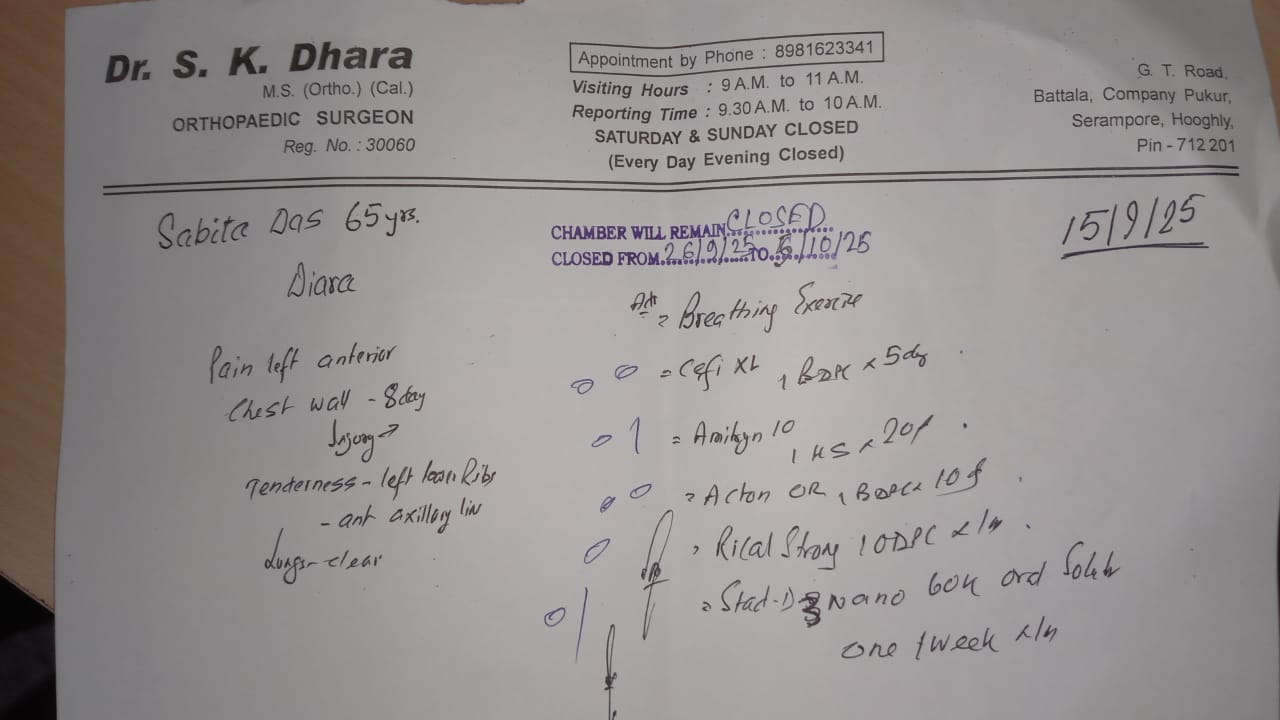 Dr. S. K. Dhara
M.S. (Ortho.) (Cal.)
ORTHOPAEDIC SURGEON
Reg. No. : 30060
Appointment by Phone : 8981623341
Visiting Hours : 9 A.M. to 11 A.M.
Reporting Time : 9.30 A.M. to 10 A.M.
SATURDAY & SUNDAY CLOSED
(Every Day Evening Closed)
G. T. Road,
Battala, Company Pukur,
Serampore, Hooghly,
Pin - 712 201
Sabita Das 65 yrs.
Diara
CHAMBER WILL REMAIN CLOSED
CLOSED FROM 26/9/25 TO 5/10/25
15/9/25
Pain left anterior
Chest wall - 8 day
Injury
Tenderness - left lower Ribs
- ant axillary
Lungs - clear
Breathing Exercise
= Cefi XL 1 BDPC x 5
= 10 1 HS x 20
Acton OR 1 BDPC x 10
Rical Strong 1 ODPC x 1/m
Stad-D3 Nano 60K oral
one / week x 1/m